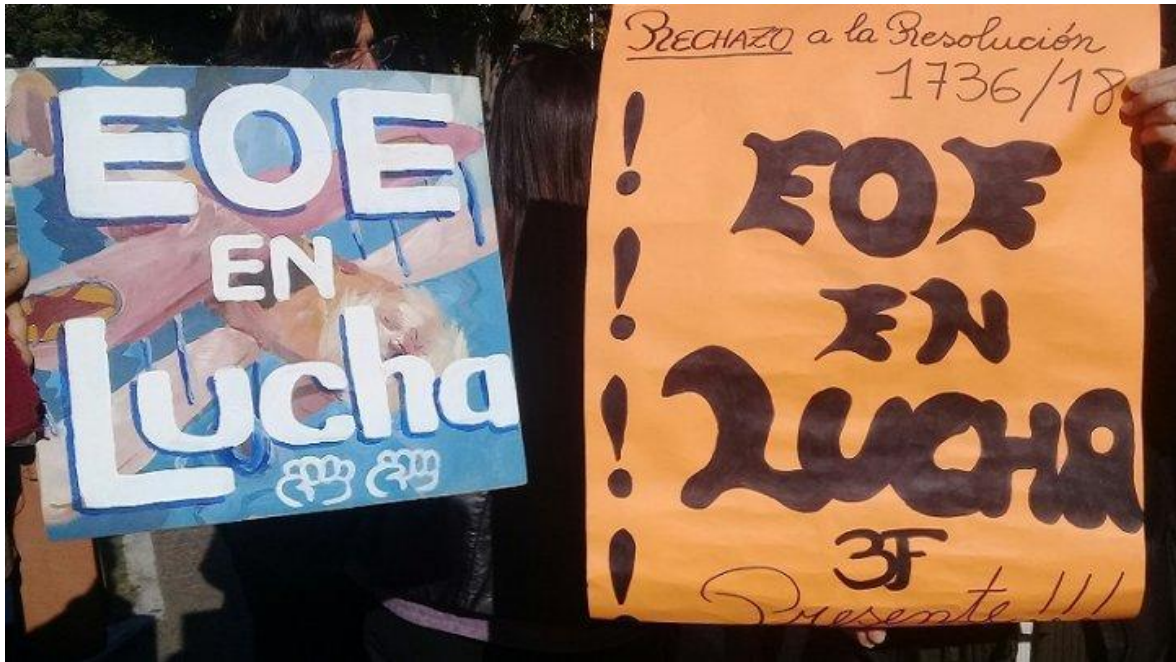 EOE
EN
Lucha
RECHAZO a la Resolución
1736/18
EOE
EN
LUCHA
3F
Presente!!!